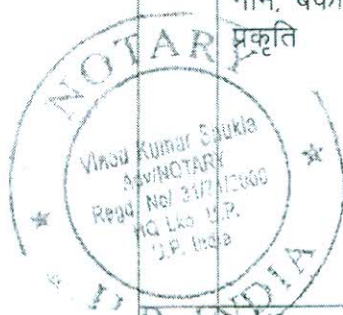 नाम, बका
प्रकृति
NOTARY
Vinod Kumar Shukla
Adv/NOTARY
Regd. No/ 31/71/2000
HQ Lko U.P.
U.P. India
INDIA